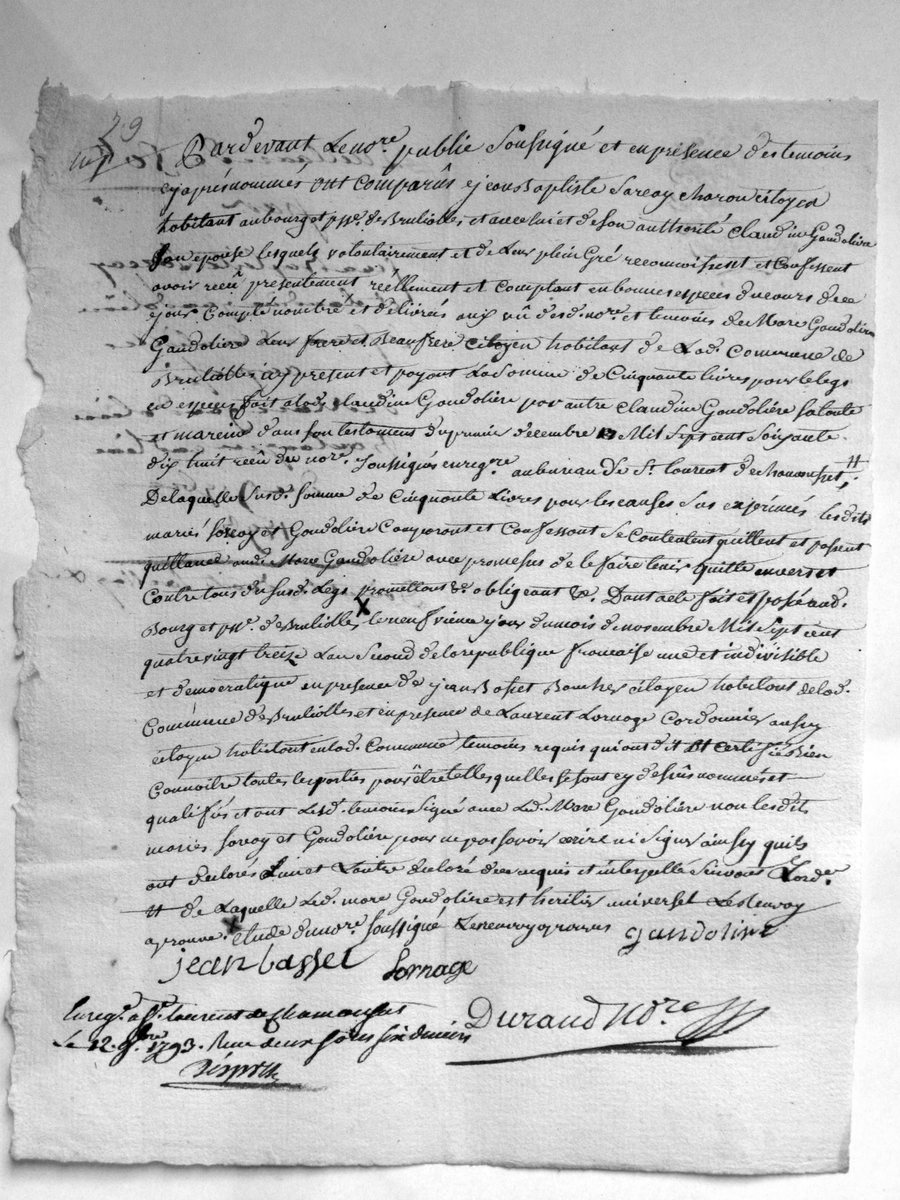 29
Pardevant Le nore. public Soussigné et en présence des temoins
cy après nommés ont comparûs jean Baptiste Sarcay charon citoyen
habitant au bourg et psse. de Brullolles et avec lui et de son authorité Claudine Gondolière
son epouse lesquels volontairement et de Leur plein Gré reconnoissent et Confessent
avoir reçû présentement réellement et comptant en bonnes especes du cours de ce
jour Compté nombré et délivrés aux vû desd. nore. et temoins de Marc Gondoliere
Gaudolière Leur frere et Beaufrère citoyen habitant de Lad. Commune de
Brullolles cy present et payant La Somme de Cinquante livres pour le legs
en especes fait a lad. Claudine Gondolière par autre Claudine Gondolière sa tante
et mareine dans son testament du premier décembre Mil Sept cent Soixante
dix huit reçû du nore. Soussigné enregtre. au bureau de St. Laurent de chamousset #;
De laquelle Susd. Somme de Cinquante Livres pour les causes Sus exprimés les dits
mariés Sarcay et Gondolière Comparant et Confessant Se Contentent quittent et passent
quittance aud. Marc Gondolière avec promesses de le faire tenir quitte envers et
Contre tous du susd. Legs promettant &. obligeant &. Dont acte fait et passé aud.
Bourg et psse. de Brullolles X le neufvieme jour du mois de novembre Mil Sept cent
quatre vingt treize L'an Second de la republique francaise une et indivisible
et démocratique en présence de jean Basset Boucher citoyen habitant de lad.
Commune de Brullolles et en présence de Laurent Lornage Cordonnier aussy
citoyen habitant en lad. Commune temoins requis qui ont dit et certifié Bien
Connoitre toutes les parties pour être telles quelles Se sont cy dessûs nommés et
qualifiés et ont Lesd. temoins Signé avec Led. Marc Gondolière non les dits
mariés Sarcay et Gondolière pour ne pas Savoir écrire ni Signer ainsy quils
ont declarés L'un et L'autre de ce requis et interpellé Suivant L'ordce.
# de Laquelle Led. marc Gondolière est heritier universel Le renvoy
aprouvé. X etude du nore. soussigné Le renvoy aprouvé gandoline
jean basset Lornage
Durand Nore.
Enregt. a St. Laurent de Chamousset
Le 12. 9bre 1793. Reçu deux sols six deniers